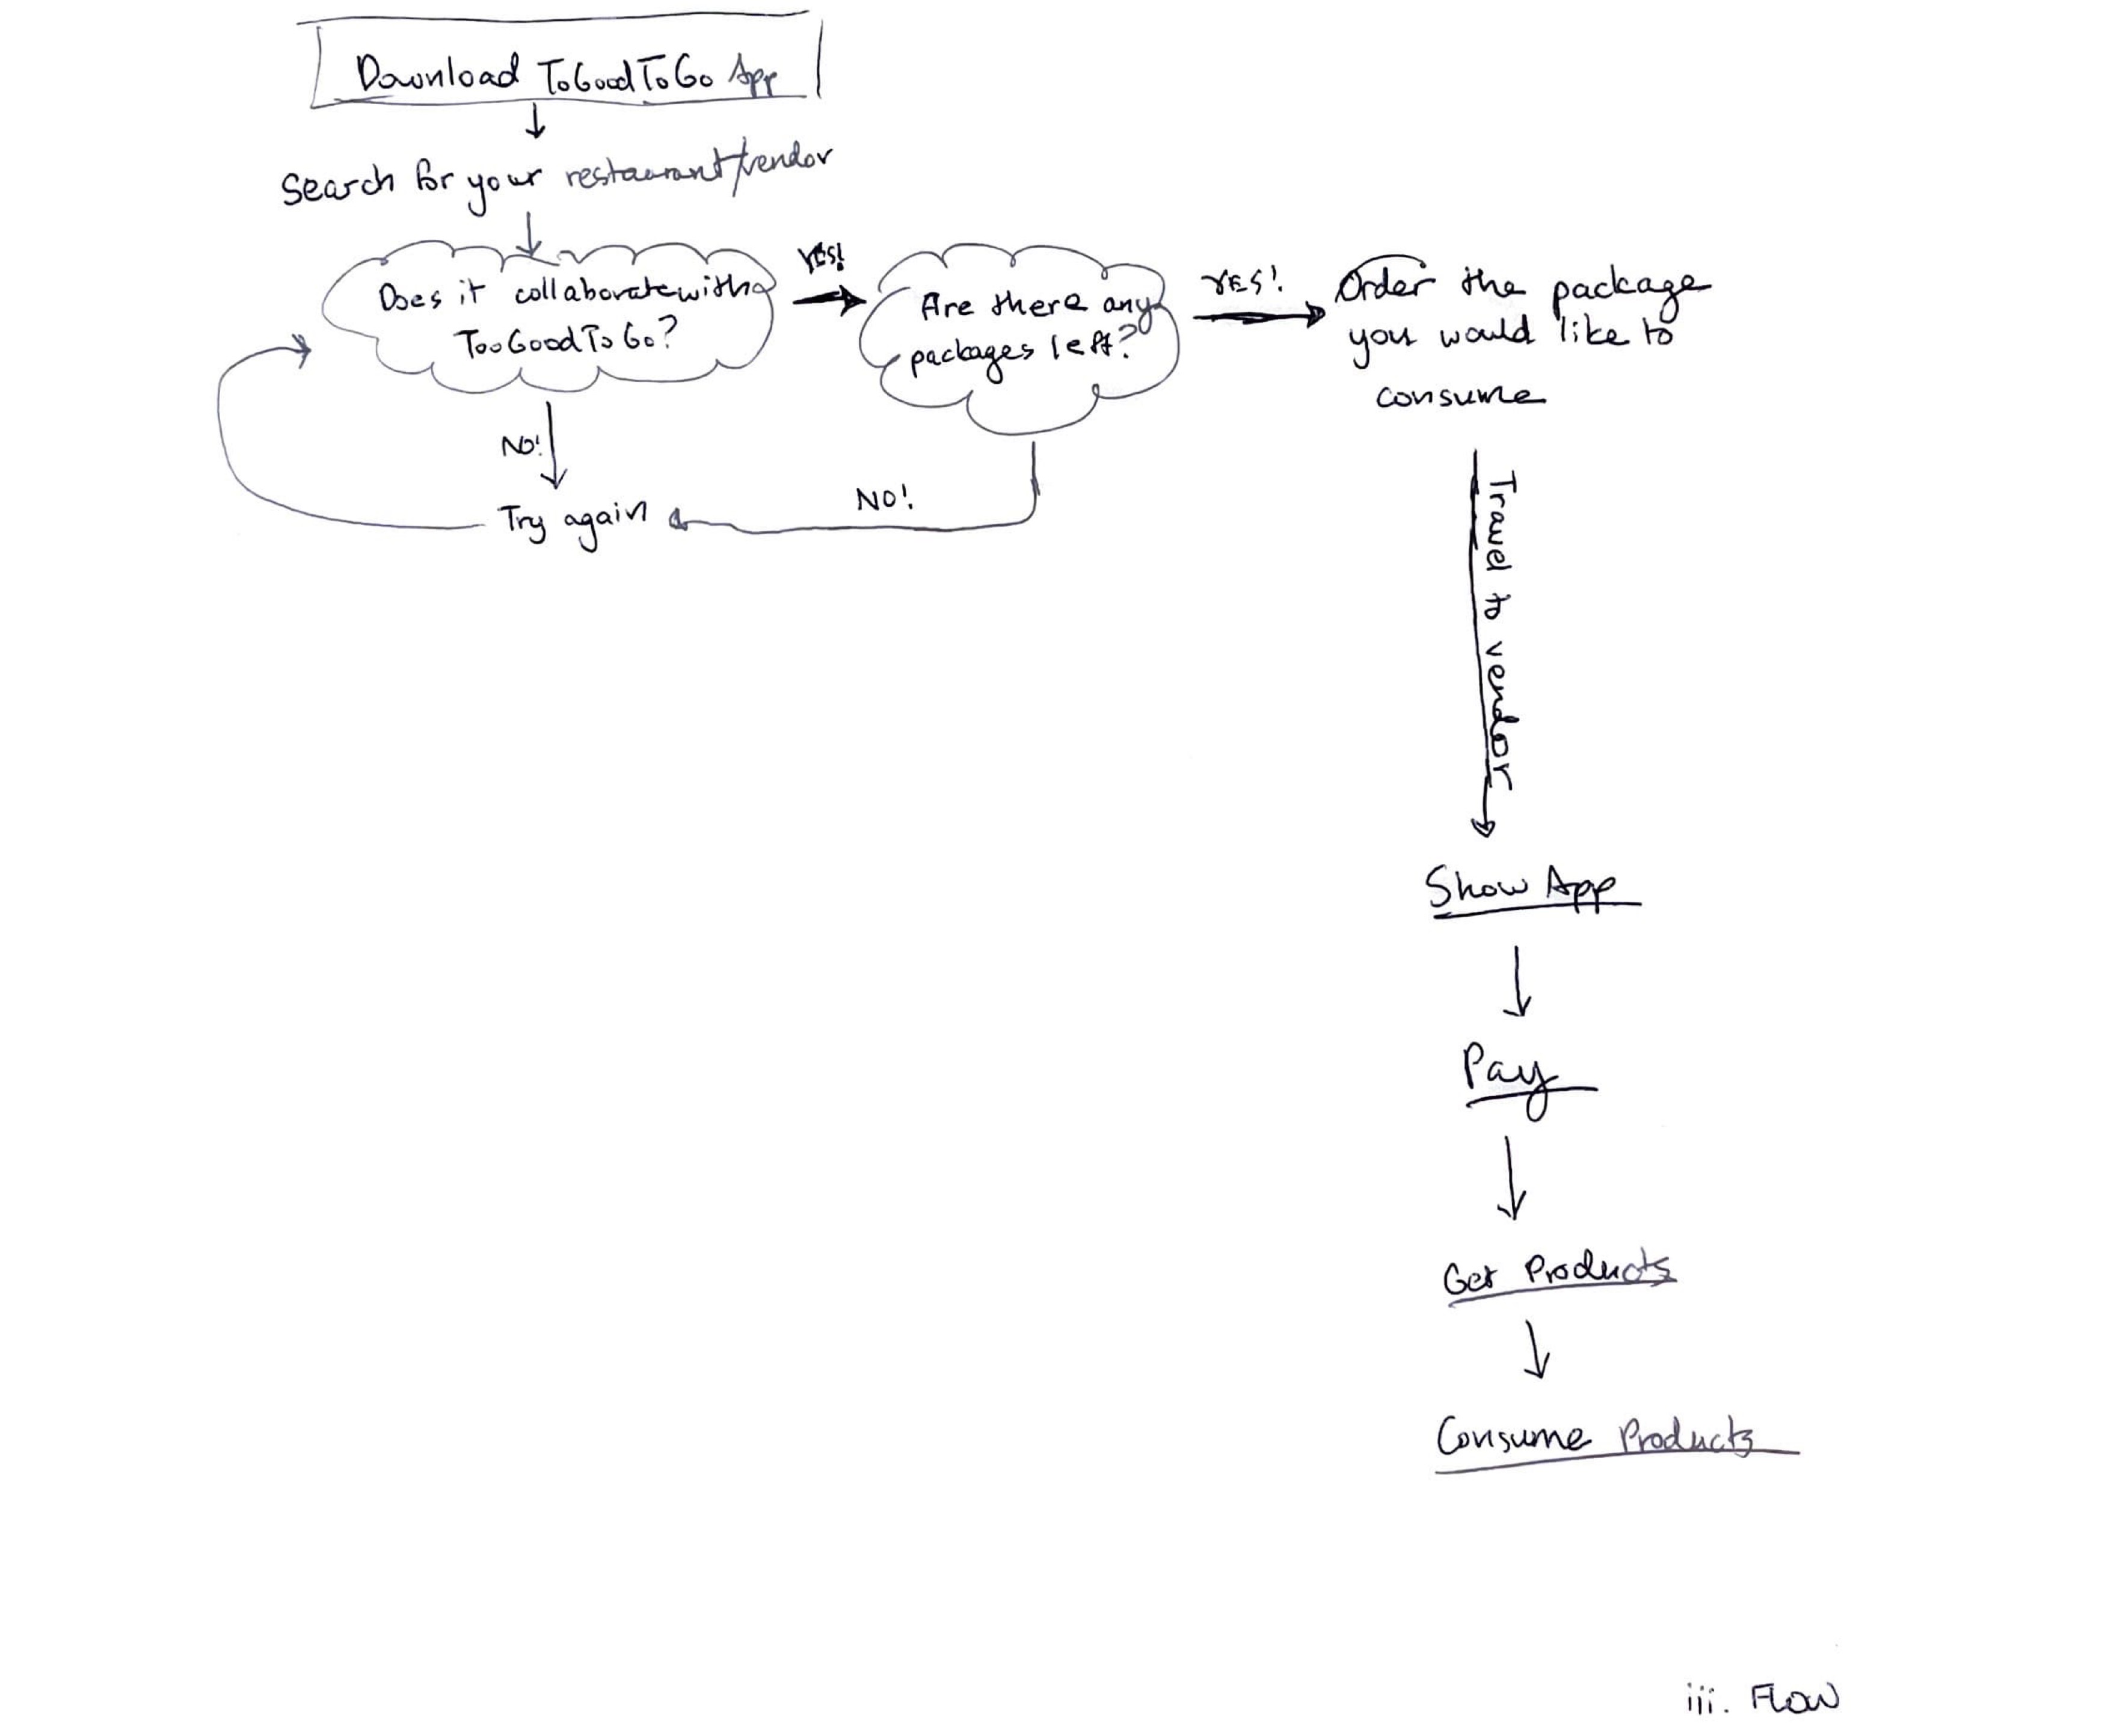 Download ToGoodToGo App
Search for your restaurant/vendor
Does it collaborate with
TooGoodToGo?
YES!
Are there any
packages left?
YES!
Order the package
you would like to
consume
NO!
Try again
NO!
Travel to vendor
Show App
Pay
Get Products
Consume Products
iii. FLOW